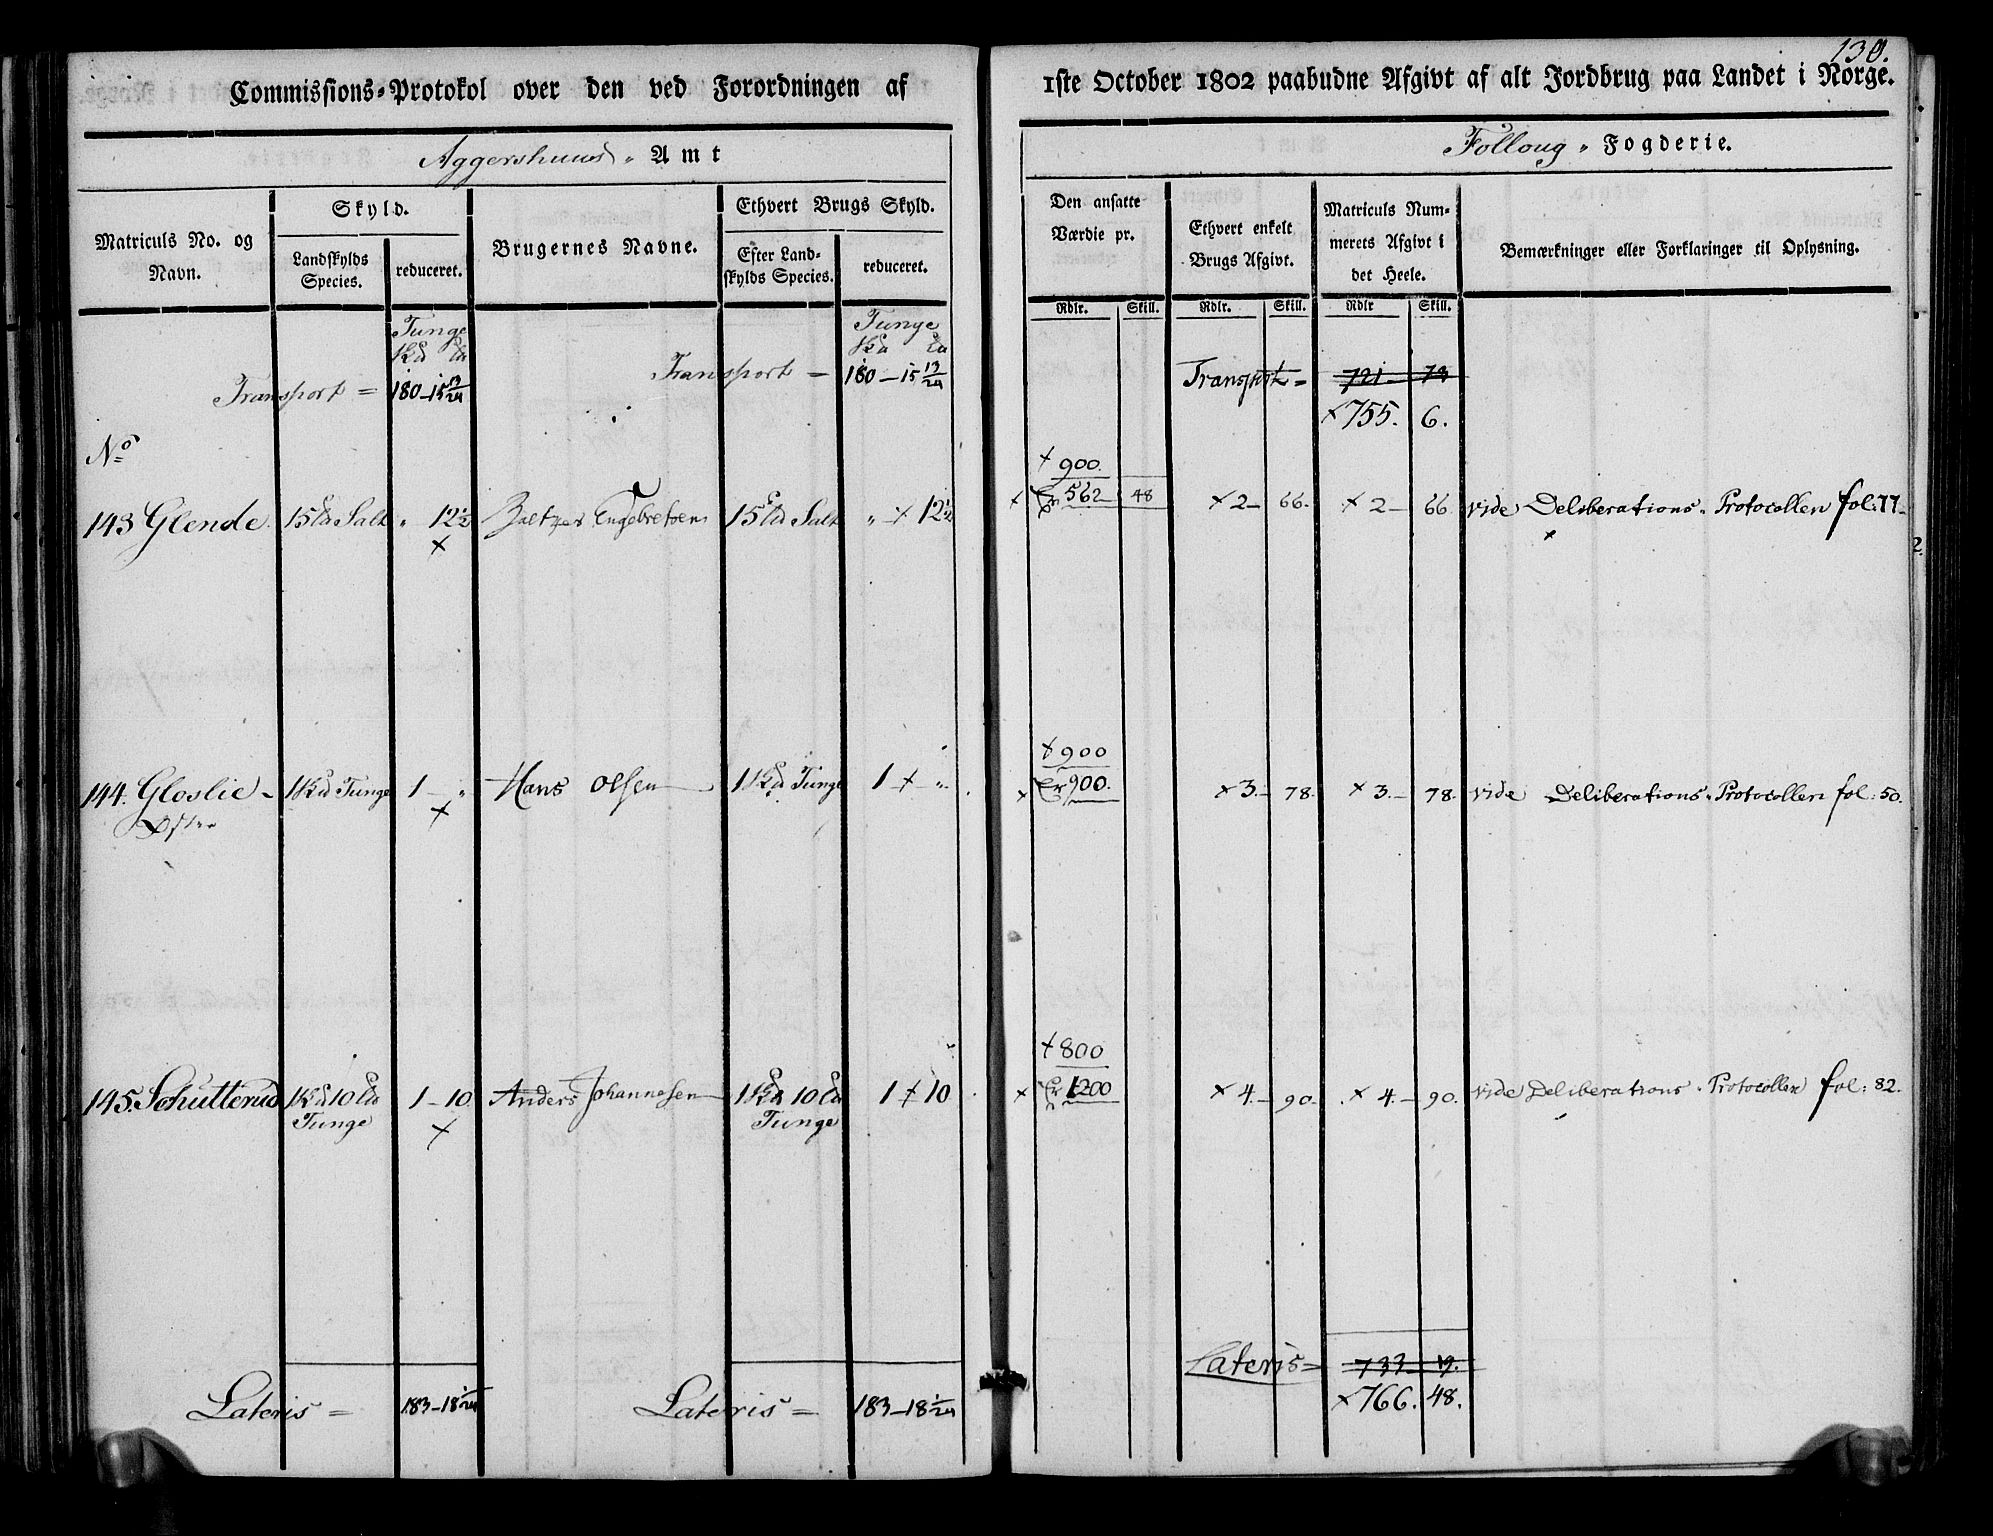 130.
Commissions-Protokol over den ved Forordningen af
Aggershuus Amt
Matriculs No. og Navn.
Skyld.
Landskylds Species.
reduceret.
Brugernes Navne.
Ethvert Brugs Skyld.
Efter Landskylds Species.
reduceret.
Tunge
Tunge
Transport = 180 – 15 13/24
Transport = 180 – 15 13/24
No
143 Glende. 15 Salt „ 12½ Engebretsen 15 Salt „ + 12½
144. Gloslie – 1 Tunge 1 – „ Hans Olsen 1 Tunge 1 + „
Østre
145. Schutterud 1 10 1 – 10 Anders Johannesen 1 10 1 + 10
Tunge Tunge
Lateris = 183 – 18 1/24 Lateris = 183 – 18 1/24
1ste October 1802 paabudne Afgivt af alt Jordbrug paa Landet i Norge.
Folloug Fogderie.
Den ansatte Værdie pr.
Ethvert enkelt Brugs Afgivt.
Matriculs Nummerets Afgivt i det Heele.
Bemærkninger eller Forklaringer til Oplysning.
Rdlr. Skill. Rdlr. Skill. Rdlr Skill.
Transport = 721 – 73
× 755. 6.
+ 900.
× 562 48 × 2 – 66. × 2 – 66 vide Deliberations-Protocollen fol: 77
+ 900
× 900. × 3. – 78. × 3. – 78. vide Deliberations-Protocollen fol: 50.
+ 800
× 1200 × 4. – 90. × 4. – 90. vide Deliberations-Protocollen fol: 82.
Lateris = 733 19.
× 766. 48.